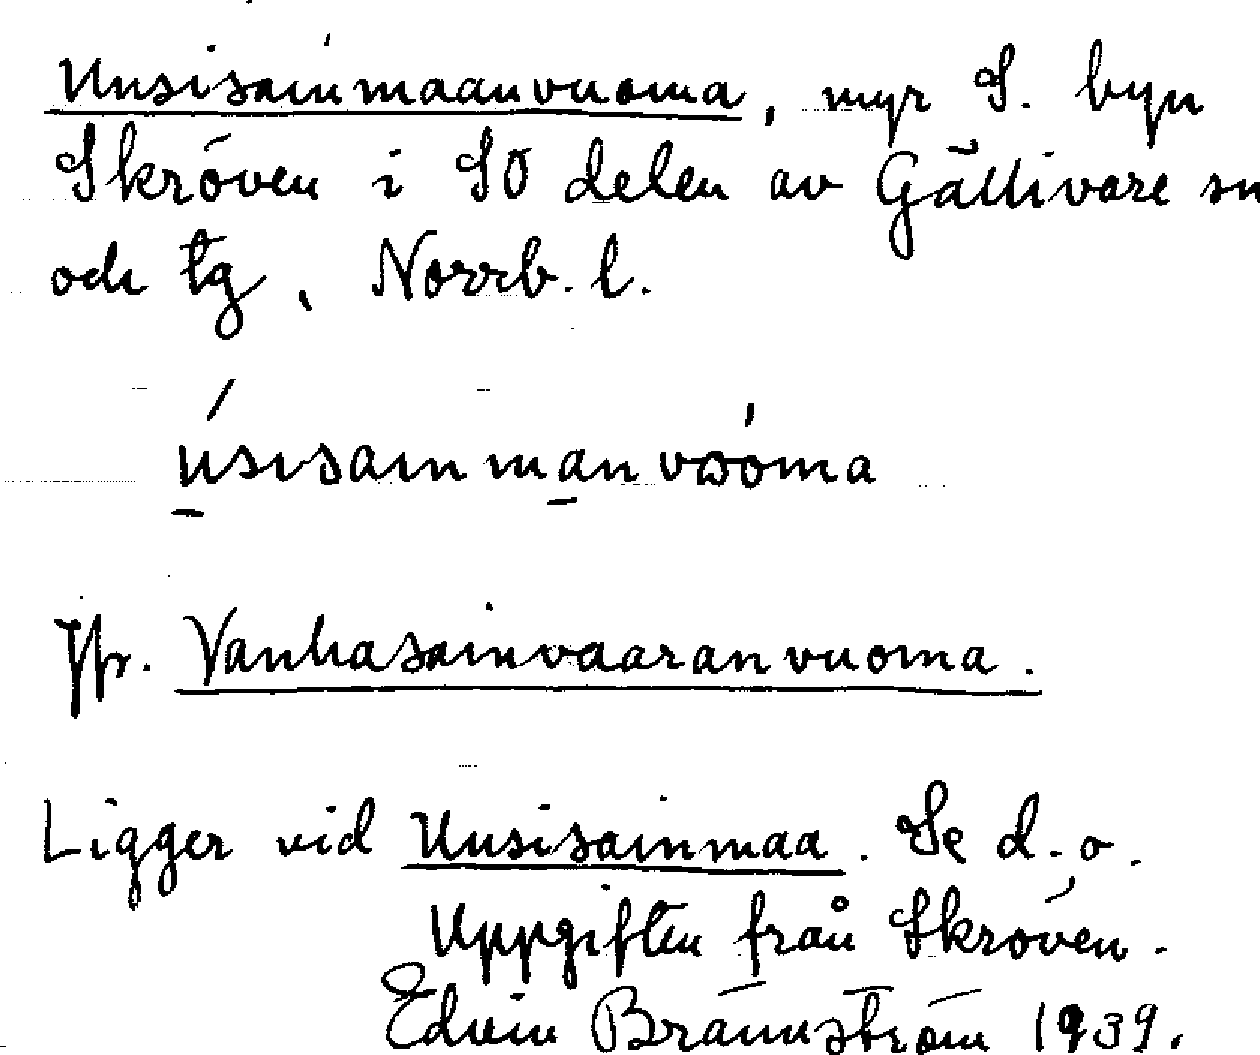 Uusisainmaanvuoma, myr S. byn
Skröven i SÖ delen av Gällivare sn
och tg, Norrb. l.
úsisainmanvωoma
Jfr. Vanhasainvaaranvuoma.
Ligger vid Uusisainmaa. Se d.o.
Uppgiften från Skröven.
Edvin Brännström 1939.